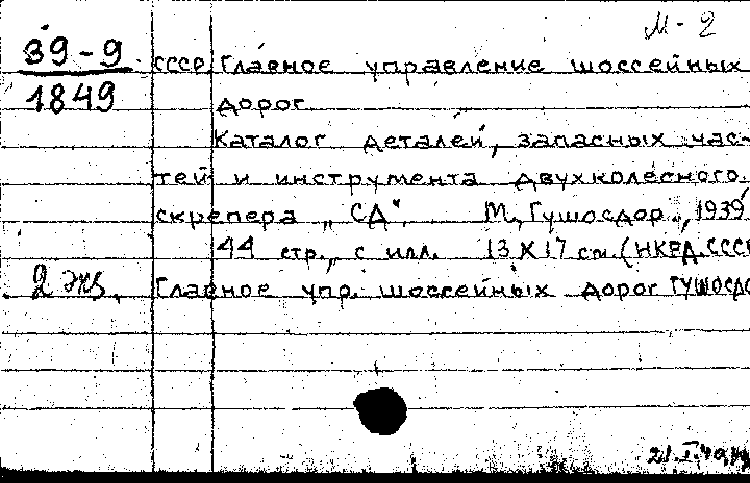 М-2
39-9 СССР. Главное управление шоссейных
1849 дорог.
Каталог деталей, запасных час-
тей и инструмента двухколесного
скрепера „СД“ М., Гушосдор, 1939
44 стр., с илл. 13 X 17 см. (НКВД СССР
2 экз. Главное упр. шоссейных дорог ГУШОСДО